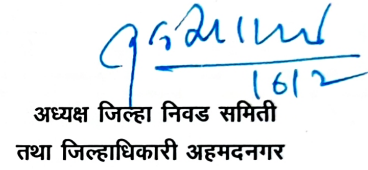 1612
अध्यक्ष जिल्हा निवड समिती
तथा जिल्हाधिकारी अहमदनगर